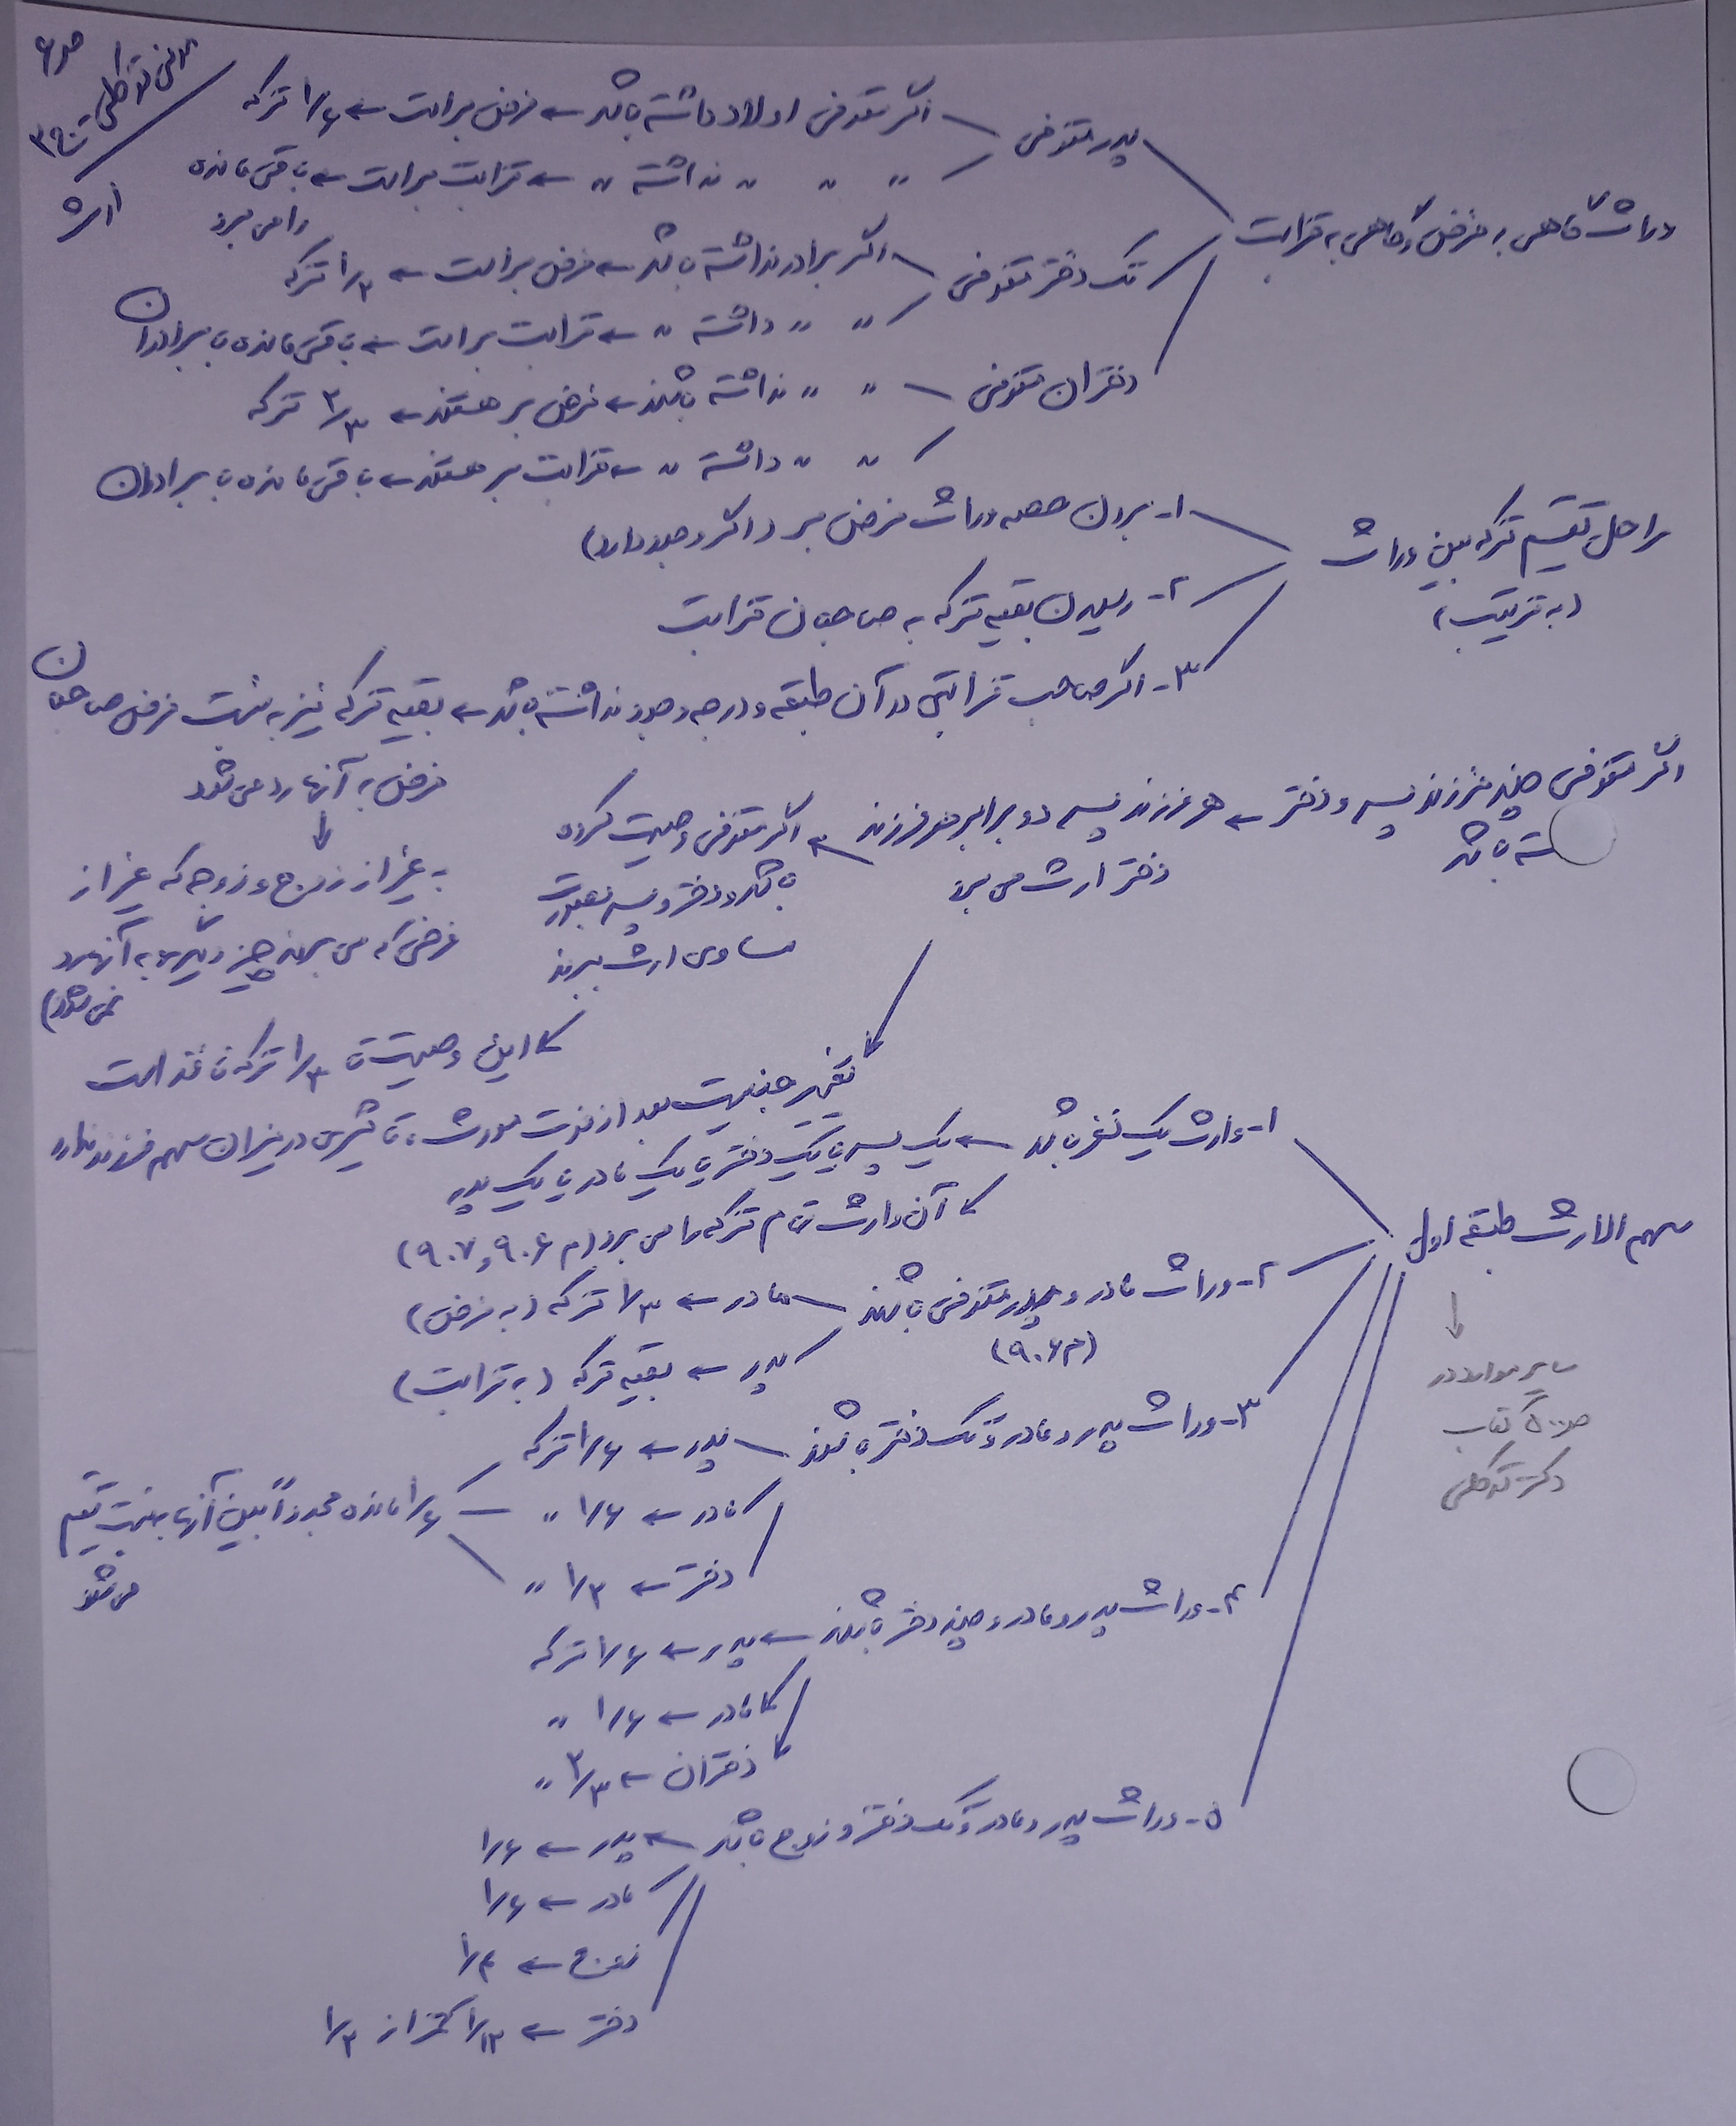 ص ۶
مدنی توکلی
ج ۳
ارث
وراث گاهی به فرض و گاهی به قرابت
پدر متوفی
اگر متوفی اولاد داشته باشد ← فرض بر است ← ۱/۶ ترکه
〃 〃 〃 نداشته 〃 ← قرابت بر است ← باقی مانده
را می برد
تک دختر متوفی
اگر برادر نداشته باشد ← فرض بر است ← ۱/۲ ترکه
〃 〃 داشته 〃 ← قرابت بر است ← باقی مانده با برادران
دختران متوفی
〃 〃 نداشته باشند ← فرض بر هستند ← ۲/۳ ترکه
〃 〃 داشته 〃 ← قرابت بر هستند ← باقی مانده با برادران
مراحل تقسیم ترکه بین وراث
(به ترتیب)
۱- بردن حصه وراث فرض بر (اگر وجود دارد)
۲- رسیدن بقیه ترکه به صاحبان قرابت
۳- اگر صاحب قرابتی در آن طبقه و درجه وجود نداشته باشد ← بقیه ترکه نیز به نسبت فرض صاحبان
فرض به آنها رد می شود
↓
به غیر از زوج و زوجه که غیر از
فرضی که می برند چیز دیگری به آنها رد
نمی شود)
اگر متوفی چند فرزند پسر و دختر ← هر فرزند پسر دو برابر هر فرزند
شته باشد
دختر ارث می برد
اگر متوفی وصیت کرده
باشد دختر و پسر بصورت
مساوی ارث ببرند
این وصیت تا ۱/۳ ترکه نافذ است
تغییر جنسیت بعد از فوت مورث، تاثیری در میزان سهم فرزند ندارد
سهم الارث طبقه اول
↓
سایر موارد در
کتاب
دکتر توکلی
۱- وارث یک نفر باشد ← یک پسر یا یک دختر یا یک مادر یا یک پدر
آن وارث تمام ترکه را می برد (م ۹۰۶ و ۹۰۷)
۲- وراث مادر و پدر متوفی باشند
(م ۹۰۶)
مادر ← ۱/۳ ترکه (به فرض)
پدر ← بقیه ترکه (به قرابت)
۳- وراث پدر و مادر و تک دختر باشند
پدر ← ۱/۶ ترکه
مادر ← ۱/۶ 〃
دختر ← ۱/۲ 〃
۱/۶ مانده مجدداً بین آنها به نسبت تقسیم
می شود
۴- وراث پدر و مادر و چند دختر باشند ← پدر ← ۱/۶ ترکه
مادر ← ۱/۶ 〃
دختران ← ۲/۳ 〃
۵- وراث پدر و مادر و تک دختر و زوج باشد ← پدر ← ۱/۶
مادر ← ۱/۶
زوج ← ۱/۴
دختر ← ۱/۱۲ کمتر از ۱/۲